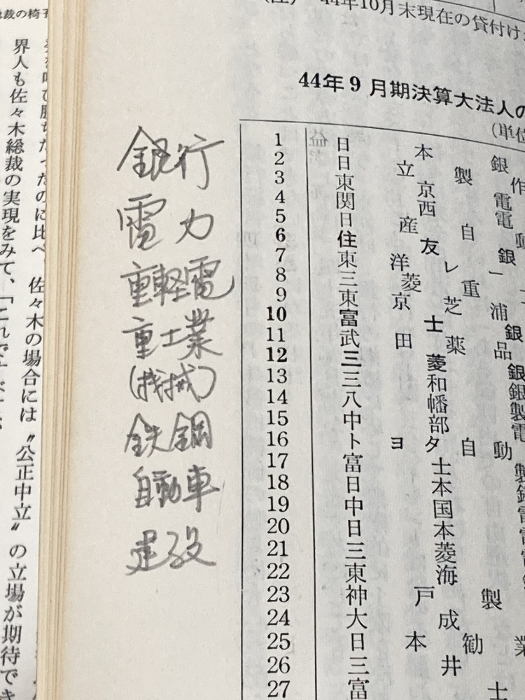 総裁の椅子
勝ちだったのに比べ、佐々木の場合には〝公正中立〟の立場が期待でき
界人も佐々木総裁の実現をみて、「これで
銀行
電力
重軽電
重工業
(機械)
鉄鋼
自動車
建設
44年10月末現在の貸付け
44年9月期決算大法人の
(単位
1 日本銀
2 日立製作
3 東京電
4 関西電
5 日産自動
6 住友銀
7 東洋レー
8 三菱重
9 東京芝浦
10 富士銀
11 武田薬品
12 三菱銀
13 三和銀
14 八幡製
15 中部電
16 トヨタ自動
17 富士製
18 日本
19 中国電
20 日本電
21 三菱電
22 東海
23 神戸製
24 大成
25 日本勧業
26 三井
27 富士